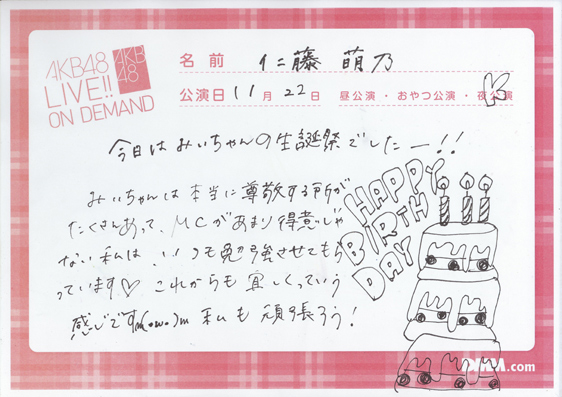 AKB48
LIVE!!
ON DEMAND
AKB
48
名前 仁藤 萌乃
公演日 11月 22日 昼公演・おやつ公演・夜公演
今日はみぃちゃんの生誕祭でしたー!!
みぃちゃんは本当に尊敬する所が
たくさんあって、MCがあまり得意じゃ
ない私は、いつも勉強させてもら
っています♡ これからも宜しくっていう
感じですm(_ _)m 私も頑張ろう!
HAPPY
BIRTH
DAY
DMM.com